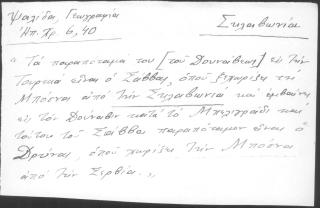 Ψαλίδα, Γεωγραφία
Απ. Χρ. 6, 40
Σκλαβωνία
"Τὰ παραπόταμα του [τοῦ Δουνάβεως] εἰς τὴν
Τουρκιὰ εἶναι ὁ Σάββας, ὁποῦ ξεχωρίζει τὴν
Μπόσνα ἀπὸ τὴν Σκλαβωνιὰ καὶ ἐμβαίνει
εἰς τὸν Δούναβιν κατὰ τὸ Μπελιγράδι καὶ
τούτου τοῦ Σάββα παραπόταμον εἶναι ὁ
Δρῖνος, ὁποῦ χωρίζει τὴν Μπόσνα
ἀπὸ τὴν Σερβία."